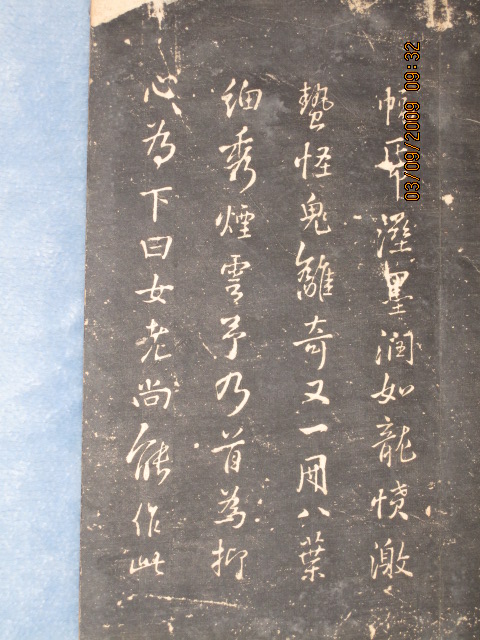 溼墨潤如龍憤激
蟄怪鬼離奇又一冊八葉
細秀煙雲予乃首為抑
心為下曰女老尚能作此
03/09/2009 09:32